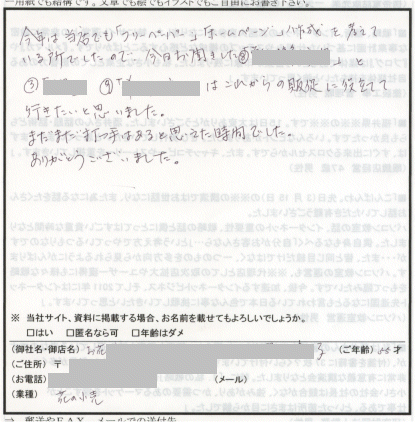 一用紙でも結構です。文章でも絵でもイラストでもご自由にお書き下さい。
今年は当店でも「フリーペーパー」「ホームページ」作成を考えて
いる所でしたので、今日お聞きした②「
」と
③「
④「
はこれからの販促に役立て
行きたいと思いました。
まだまだ打つ手はあると思えた時間でした。
ありがとうございました。
※ 当社サイト、資料に掲載する場合、お名前を載せてもよろしいでしょうか。
□はい □匿名なら可 □年齢はダメ
(御社名・御店名) お花
(ご年齢) 才
(ご住所) 〒
(お電話) (メール)
(業種) 花の小売
⇒ 郵送やFAX、メールでの送付先